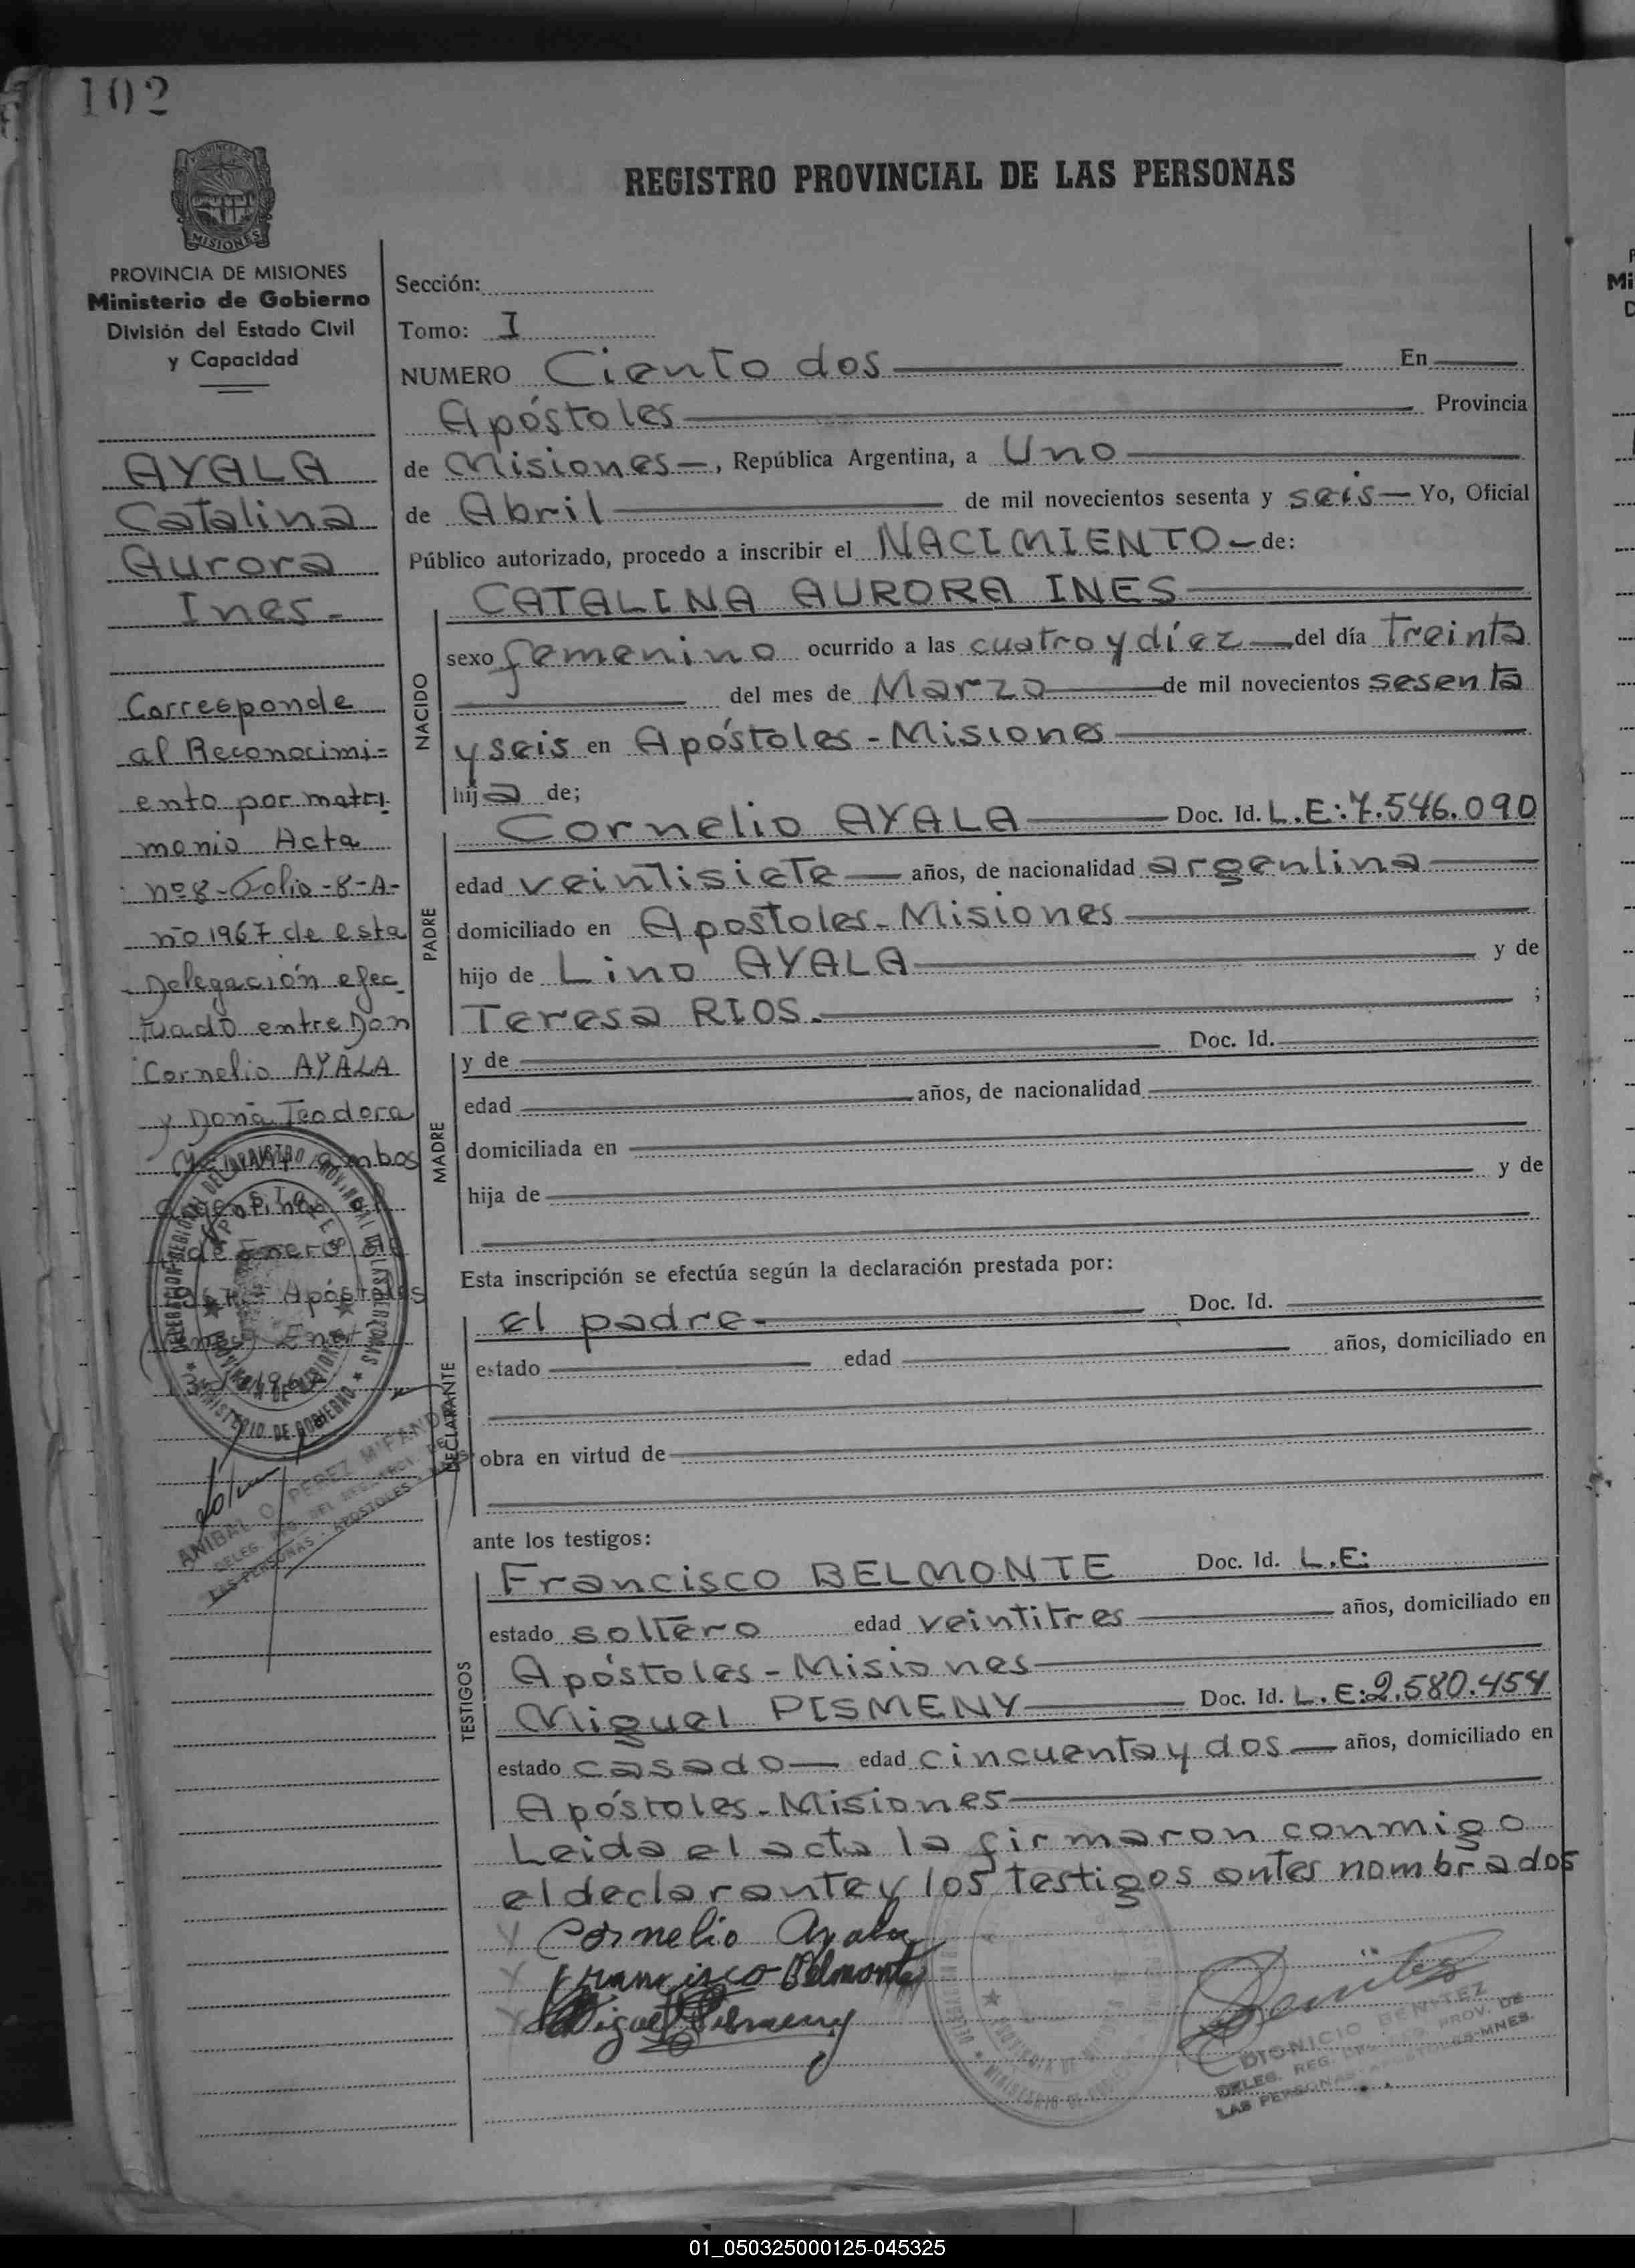 102
PROVINCIA DE
MISIONES
PROVINCIA DE MISIONES
Ministerio de Gobierno
División del Estado Civil
y Capacidad
AYALA
Catalina
Aurora
Ines-
Corresponde
al Reconocimi=
ento por matri-
monio Acta
nº 8-Folio-8-A-
ño 1967 de esta
Delegación efec
tuado entre Don
Cornelio AYALA
y Doña Teodora
ambos
argentinos
de Enero de
Apóstoles
ANIBAL O. PEREZ MIRANDA
DELEG. REG. DEL REG. PROV. DE
LAS PERSONAS - APOSTOLES - MNES.
REGISTRO PROVINCIAL DE LAS PERSONAS
Sección:
Tomo: I
NUMERO Ciento dos En
Apóstoles Provincia
de Misiones-, República Argentina, a Uno
de Abril de mil novecientos sesenta y seis- Yo, Oficial
Público autorizado, procedo a inscribir el NACIMIENTO- de:
CATALINA AURORA INES
NACIDO
sexo femenino ocurrido a las cuatro y díez del día Treinta
del mes de Marzo de mil novecientos sesenta
y seis en Apóstoles-Misiones
hija de;
PADRE
Cornelio AYALA Doc. Id. L.E:7.546.090
edad veintisiete años, de nacionalidad argentina
domiciliado en Apostoles-Misiones
hijo de Lino AYALA y de
Teresa RIOS. ;
MADRE
y de Doc. Id.
edad años, de nacionalidad
domiciliada en
hija de y de
Esta inscripción se efectúa según la declaración prestada por:
DECLARANTE
el padre- Doc. Id.
estado edad años, domiciliado en
obra en virtud de
ante los testigos:
TESTIGOS
Francisco BELMONTE Doc. Id. L.E:
estado soltero edad veintitres años, domiciliado en
Apóstoles-Misiones
Miguel PISMENY Doc. Id. L.E:2.580.454
estado casado edad cincuenta y dos años, domiciliado en
Apóstoles-Misiones
Leida el acta la firmaron conmigo
el declarante y los testigos antes nombrados
Cornelio Ayala
Francisco Belmonte
Miguel Pismeny
Benitez
DIONICIO BENITEZ
DELEG. REG. DEL REG. PROV. DE
LAS PERSONAS-APOSTOLES-MNES.
01_050325000125-045325